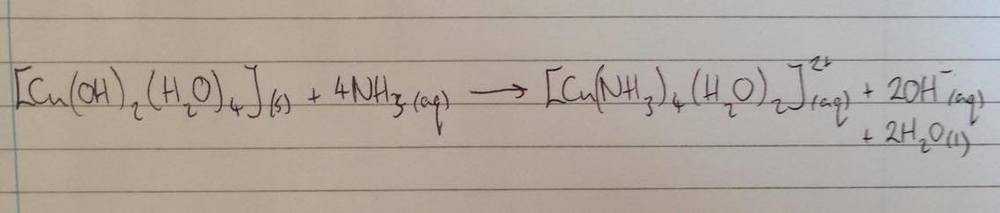 [Cu(OH)₂(H₂O)₄](s) + 4NH₃(aq) → [Cu(NH₃)₄(H₂O)₂]²⁺(aq) + 2OH⁻(aq)
+ 2H₂O(l)